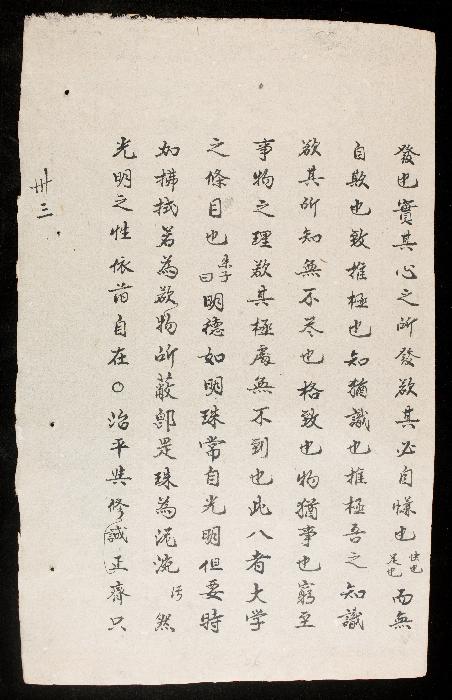 發也實其心之所發欲其必自慊也快也足也而無
自欺也致推極也知猶識也推極吾之知識
欲其所知無不尽也格致也物猶事也窮至
事物之理欲其極處無不到也此八者大学
之條目也朱子曰明德如明珠常自光明但要時
如拂拭若為欲物所蔽即是珠為泥涴污然
光明之性依旧自在○治平與修誠正齊只
卅三